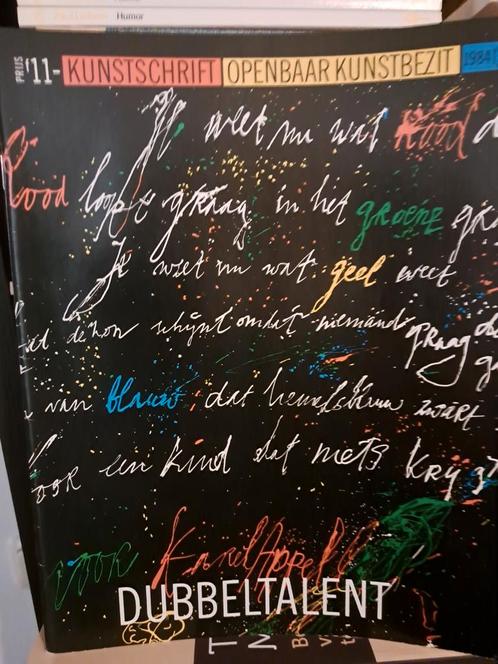 Humor
PRIJS ƒ11- KUNSTSCHRIFT OPENBAAR KUNSTBEZIT 1984
Je weet nu wat Rood d
Rood loopt graag in het groene gra
Je weet nu wat geel weet
dat de zon schijnt omdat niemand graag do
van blauw, dat hemelsblauw zwart
voor een kind dat niets kryg
voor Karel Appel
DUBBELTALENT